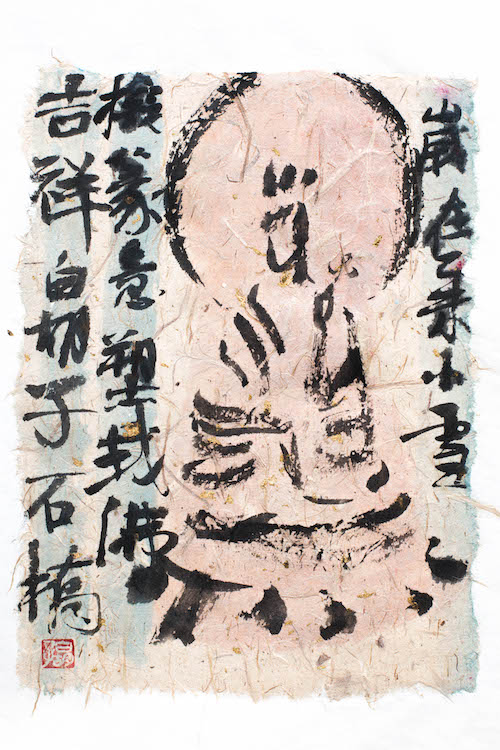 歲在乙未小雪
篆意塑我佛
吉祥白子石橋